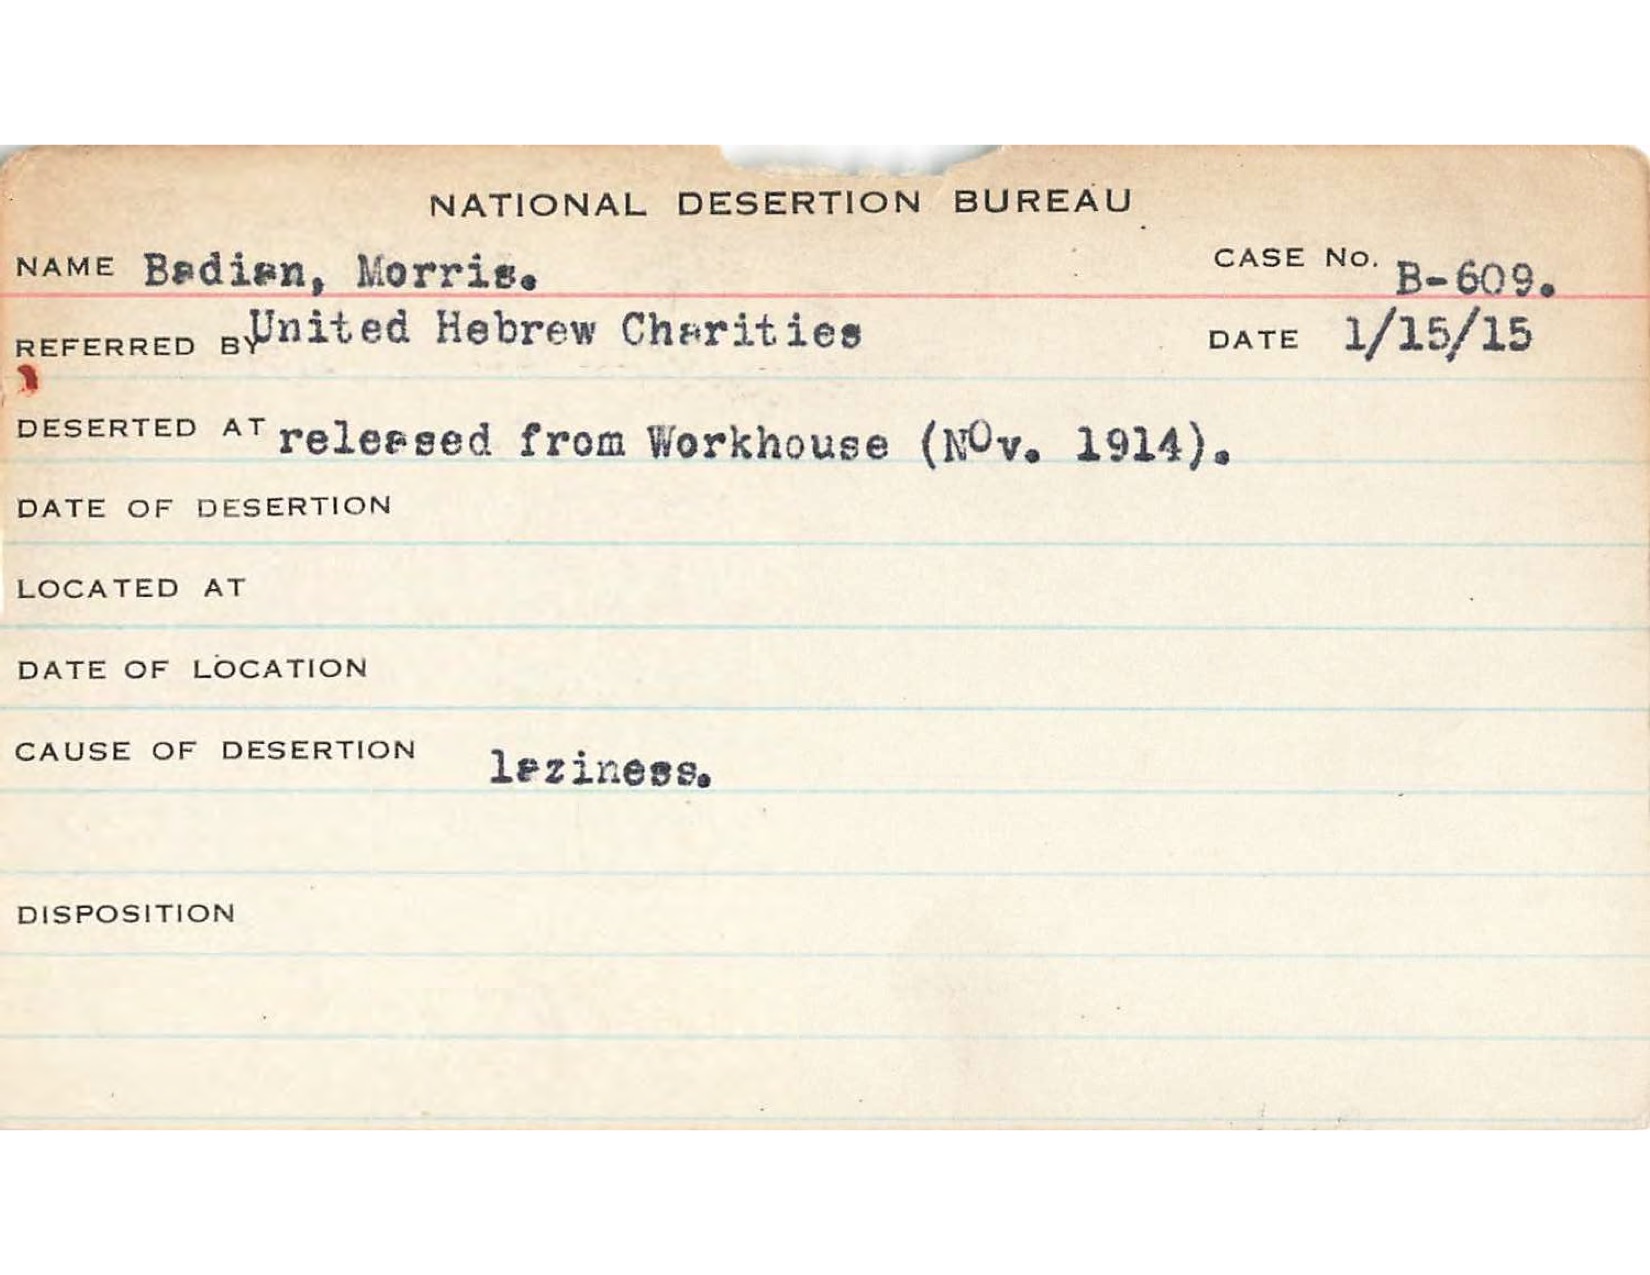 NATIONAL DESERTION BUREAU
NAME Badian, Morris. CASE No. B-609.
REFERRED BY United Hebrew Charities DATE 1/15/15
DESERTED AT released from Workhouse (NOv. 1914).
DATE OF DESERTION
LOCATED AT
DATE OF LOCATION
CAUSE OF DESERTION laziness.
DISPOSITION